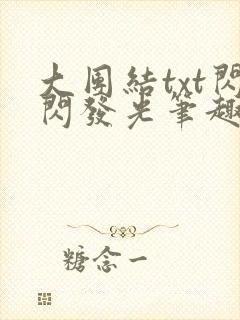 大團結txt閃
閃發光筆趣
糖念一